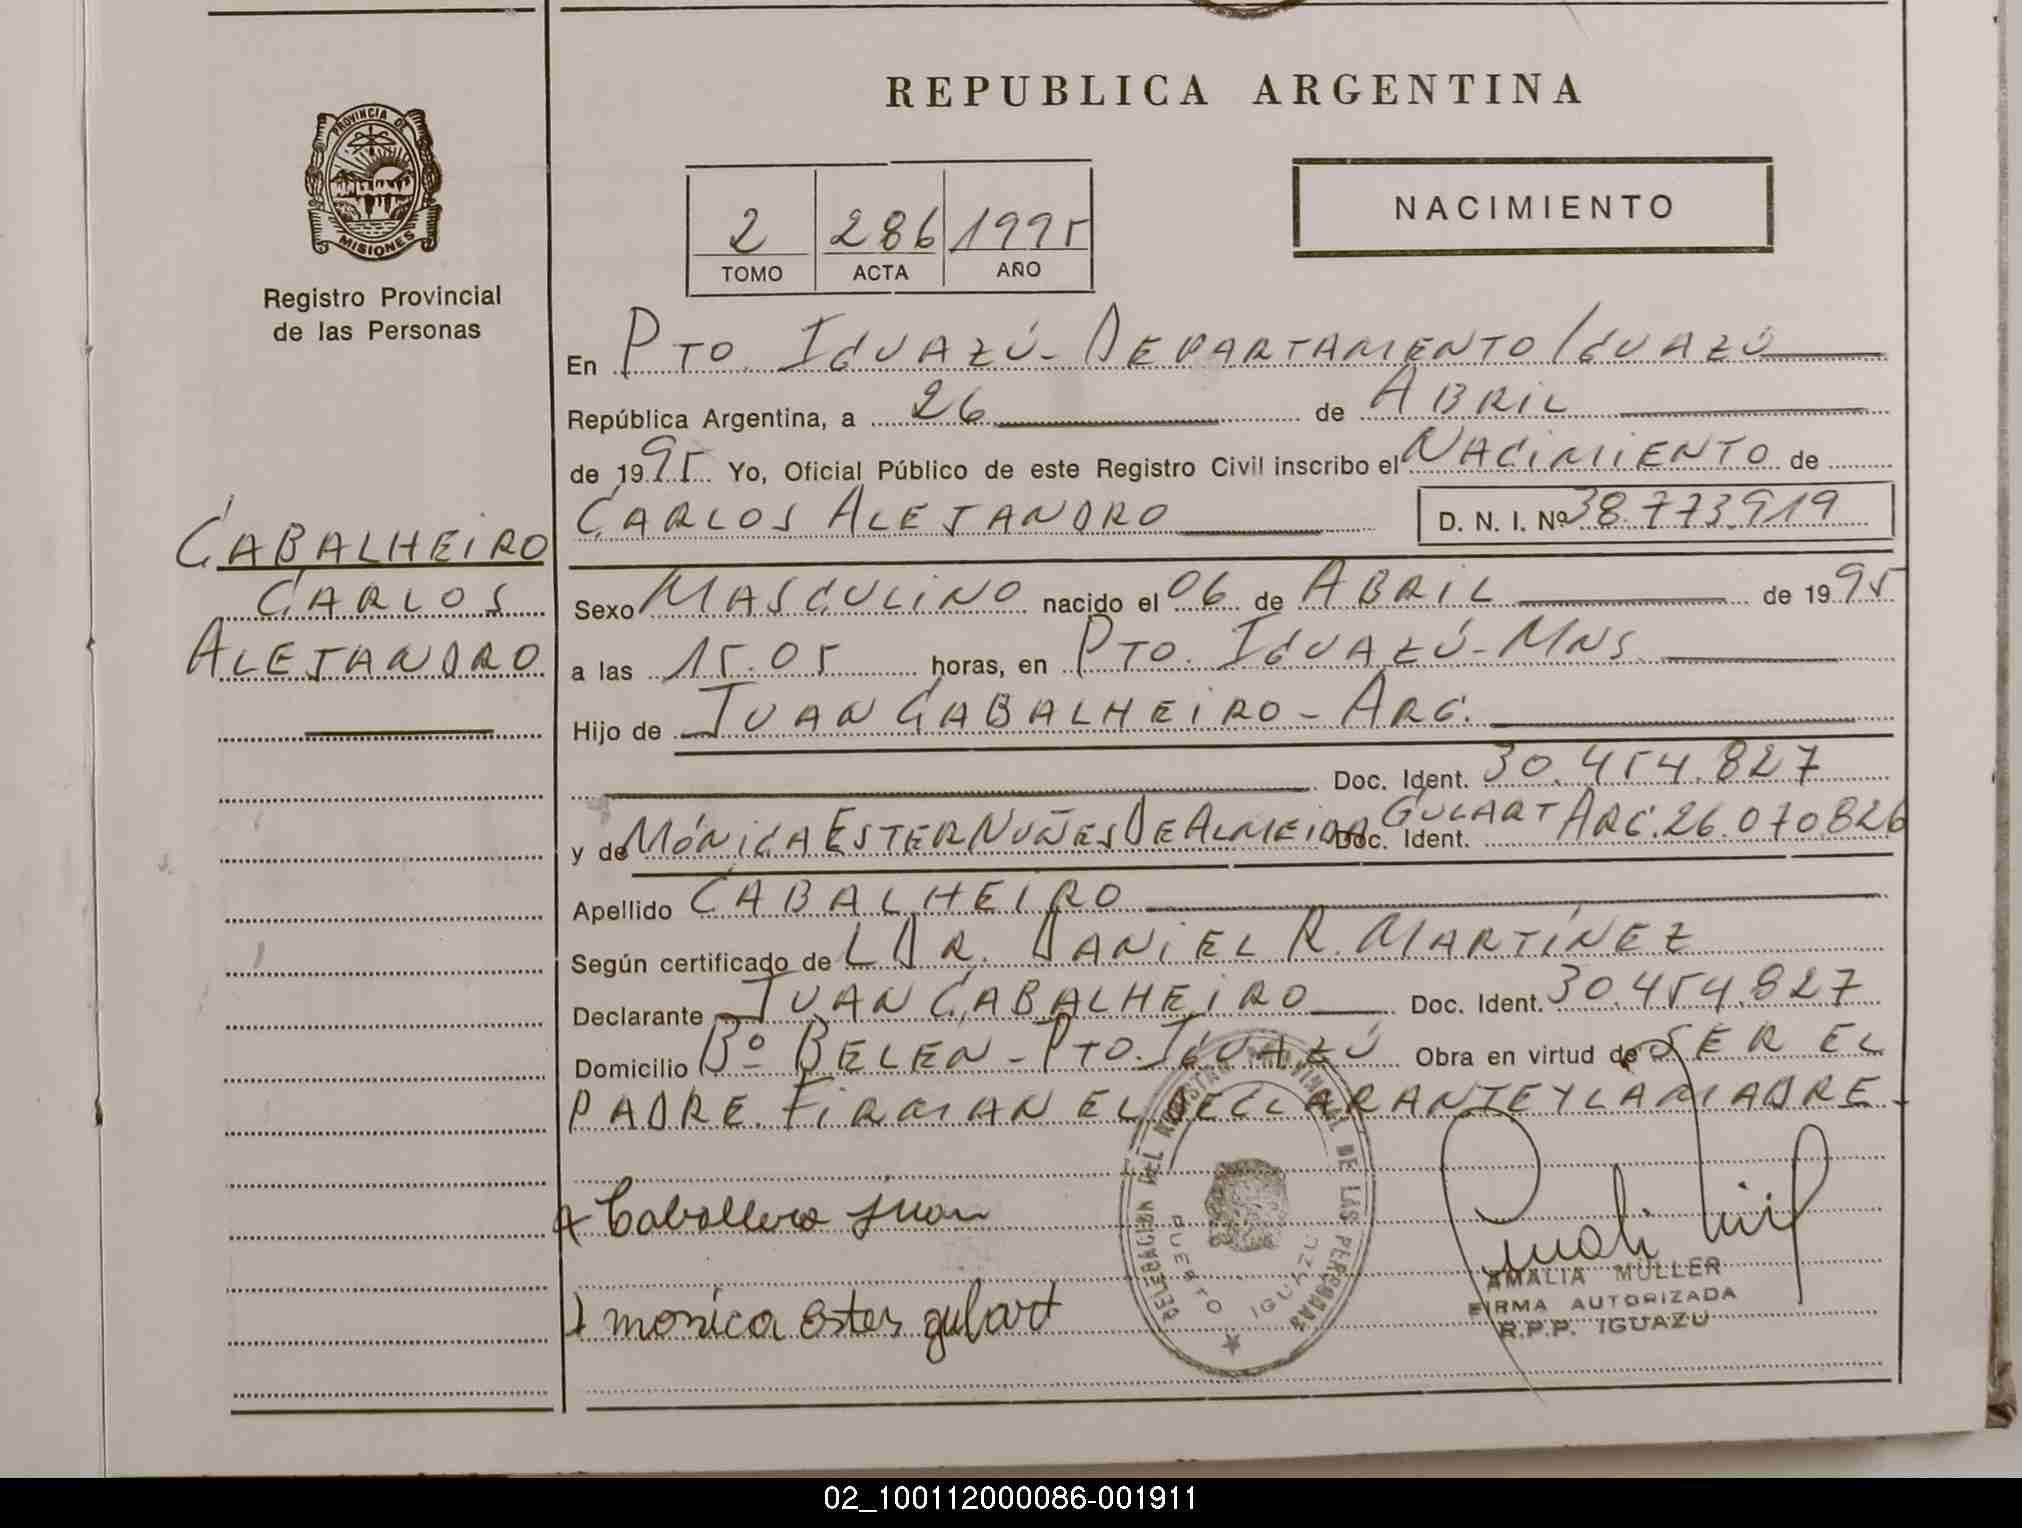 REPUBLICA ARGENTINA
PROVINCIA DE
MISIONES
Registro Provincial
de las Personas
NACIMIENTO
2 286 1995
TOMO ACTA AÑO
En PTO. IGUAZÚ - DEPARTAMENTO IGUAZÚ
República Argentina, a 26 de ABRIL
de 1995 Yo, Oficial Público de este Registro Civil inscribo el NACIMIENTO de
CARLOS ALEJANDRO D. N. I. Nº 38.773.919
CABALHEIRO
CARLOS
ALEJANDRO
Sexo MASCULINO nacido el 06 de ABRIL de 1995
a las 15.05 horas, en PTO. IGUAZÚ - MNS
Hijo de JUAN CABALHEIRO - ARG.
Doc. Ident. 30.454.827
y de MÓNICA ESTER NUÑES DE ALMEIDA GULART Doc. Ident. ARG. 26.070.826
Apellido CABALHEIRO
Según certificado de L DR. DANIEL R. MARTÍNEZ
Declarante JUAN CABALHEIRO Doc. Ident. 30.454.827
Domicilio Bº BELEN - PTO. IGUAZÚ Obra en virtud de SER EL
PADRE. FIRMAN EL DECLARANTE Y LA MADRE.
Caballero Juan
monica ester gulart
DELEGACION DEL REGISTRO PROVINCIAL DE LAS PERSONAS
PUERTO IGUAZU
AMALIA MULLER
FIRMA AUTORIZADA
R.P.P. IGUAZU
02_100112000086-001911